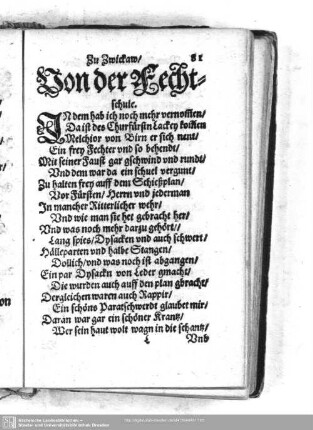 Zu Zwickaw/ 81
Von der Fecht-
schule.
IN dem hab ich noch mehr vernommen/
Da ist des Churfürstn Lackey kommen
Melchior von Birn er sich nent/
Ein frey Fechter und so behendt/
Mit seiner Faust gar gschwind und rundt/
Vnd dem war da ein schuel vergunt/
Zu halten frey auff dem Schießplan/
Vor Fürsten/ Herrn und jederman
In mancher Ritterlicher wehr/
Vnd wie man sie het gebracht her/
Vnd was noch mehr darzu gehört/
Lang spies/ Dysacken und auch schwert/
Hälleparten und halbe Stangen/
Dollich/ und was noch ist abgangen/
Ein par Dysackn von Leder gmacht/
Die wurden auch auff den plan gbracht/
Dergleichen waren auch Rappir/
Ein schöns Paratschwerdt glaubet mir/
Daran war gar ein schöner Krantz/
Wer sein haut wolt wagn in die schantz/
L Vnd